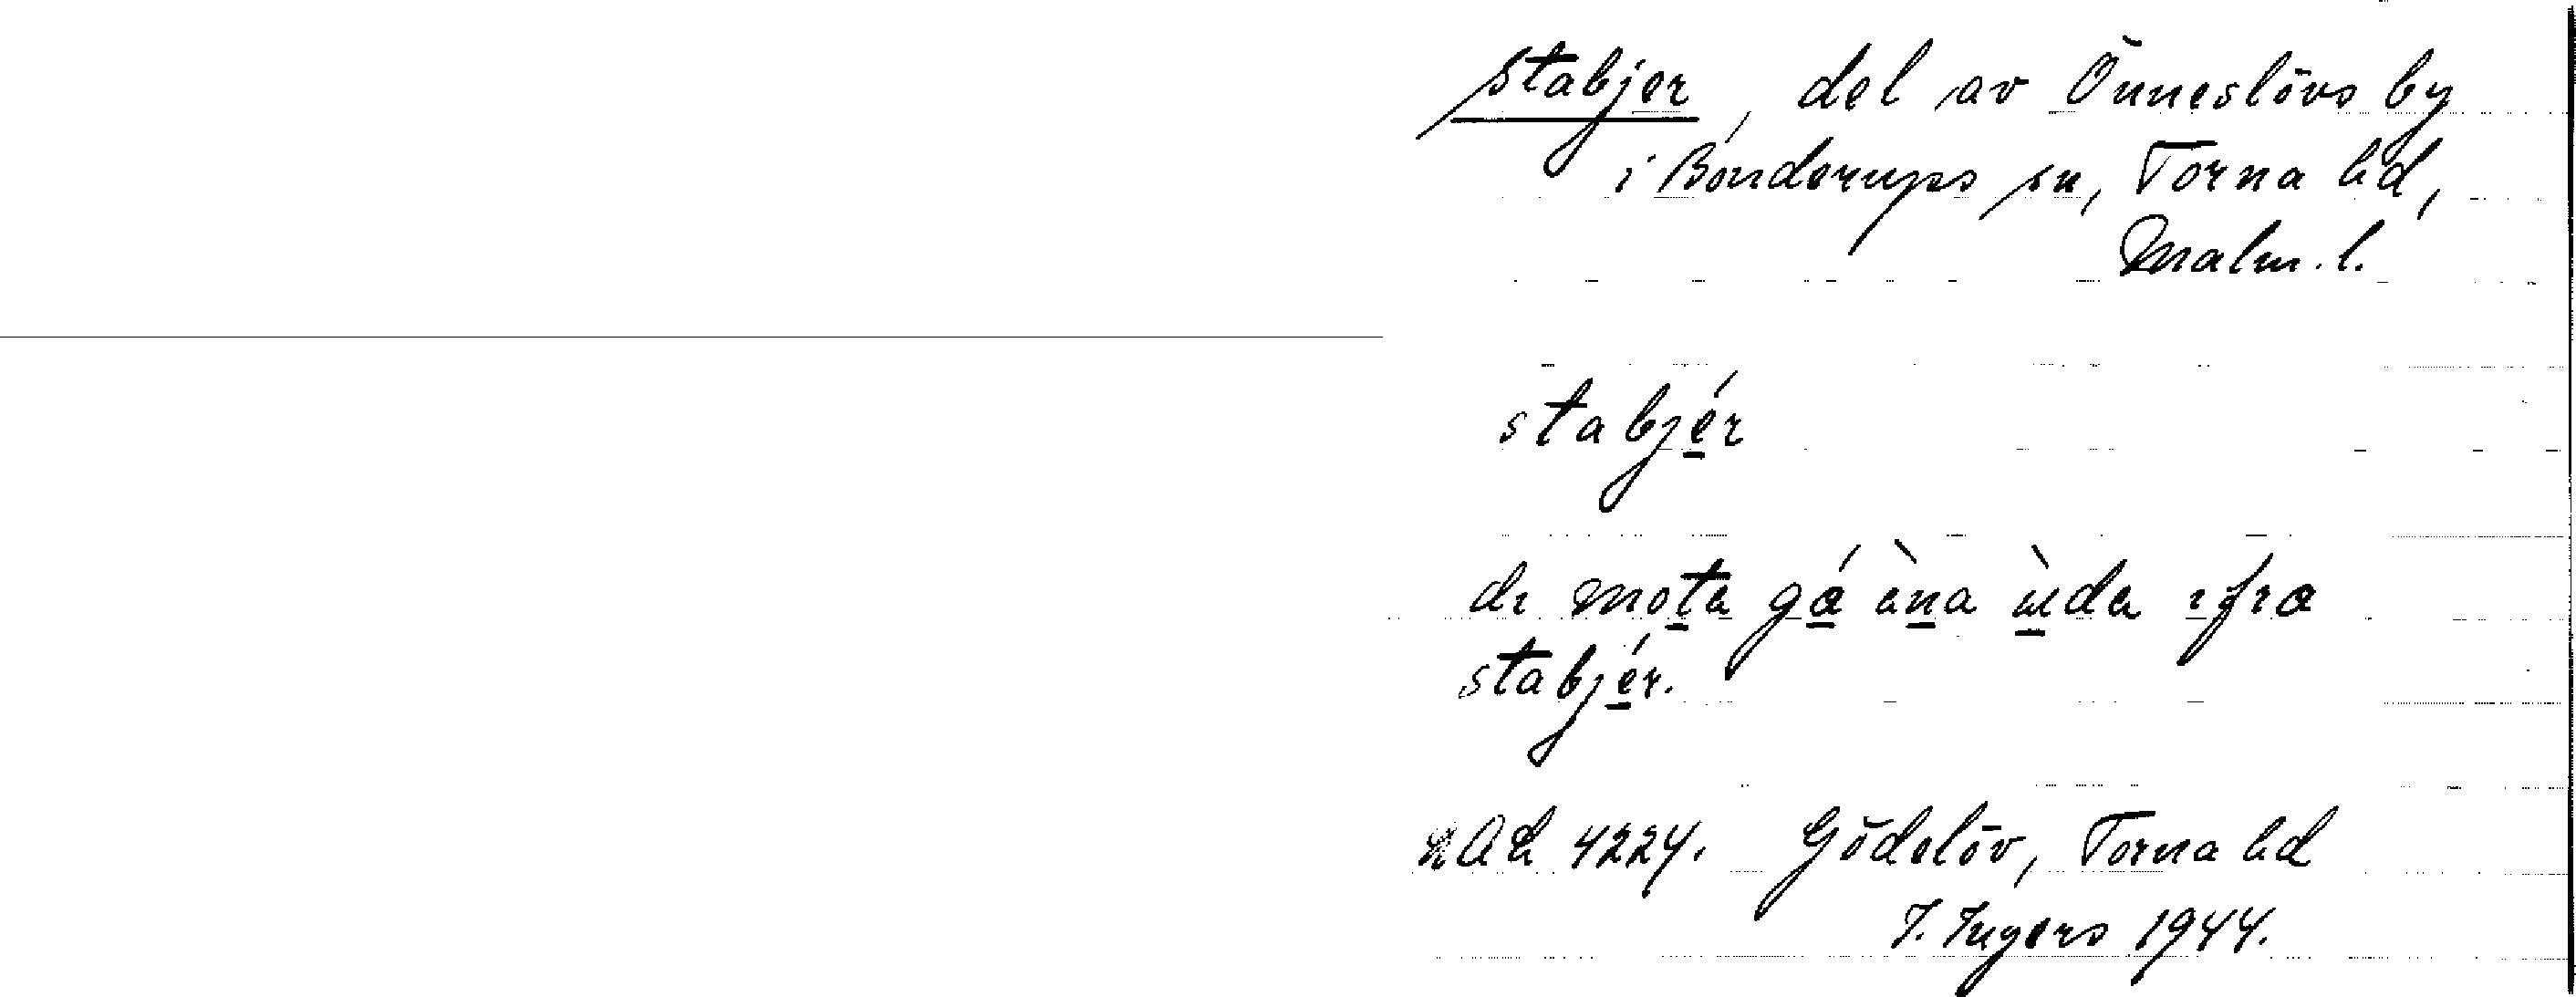 Stabjer, del av Önneslövs by
i Bonderups sn, Torna hd,
Malm. l.
stabjér
di mota gá àna ùda ifra
stabjér.
LAL 4224. Gödelöv, Torna hd
I. Ingers 1944.